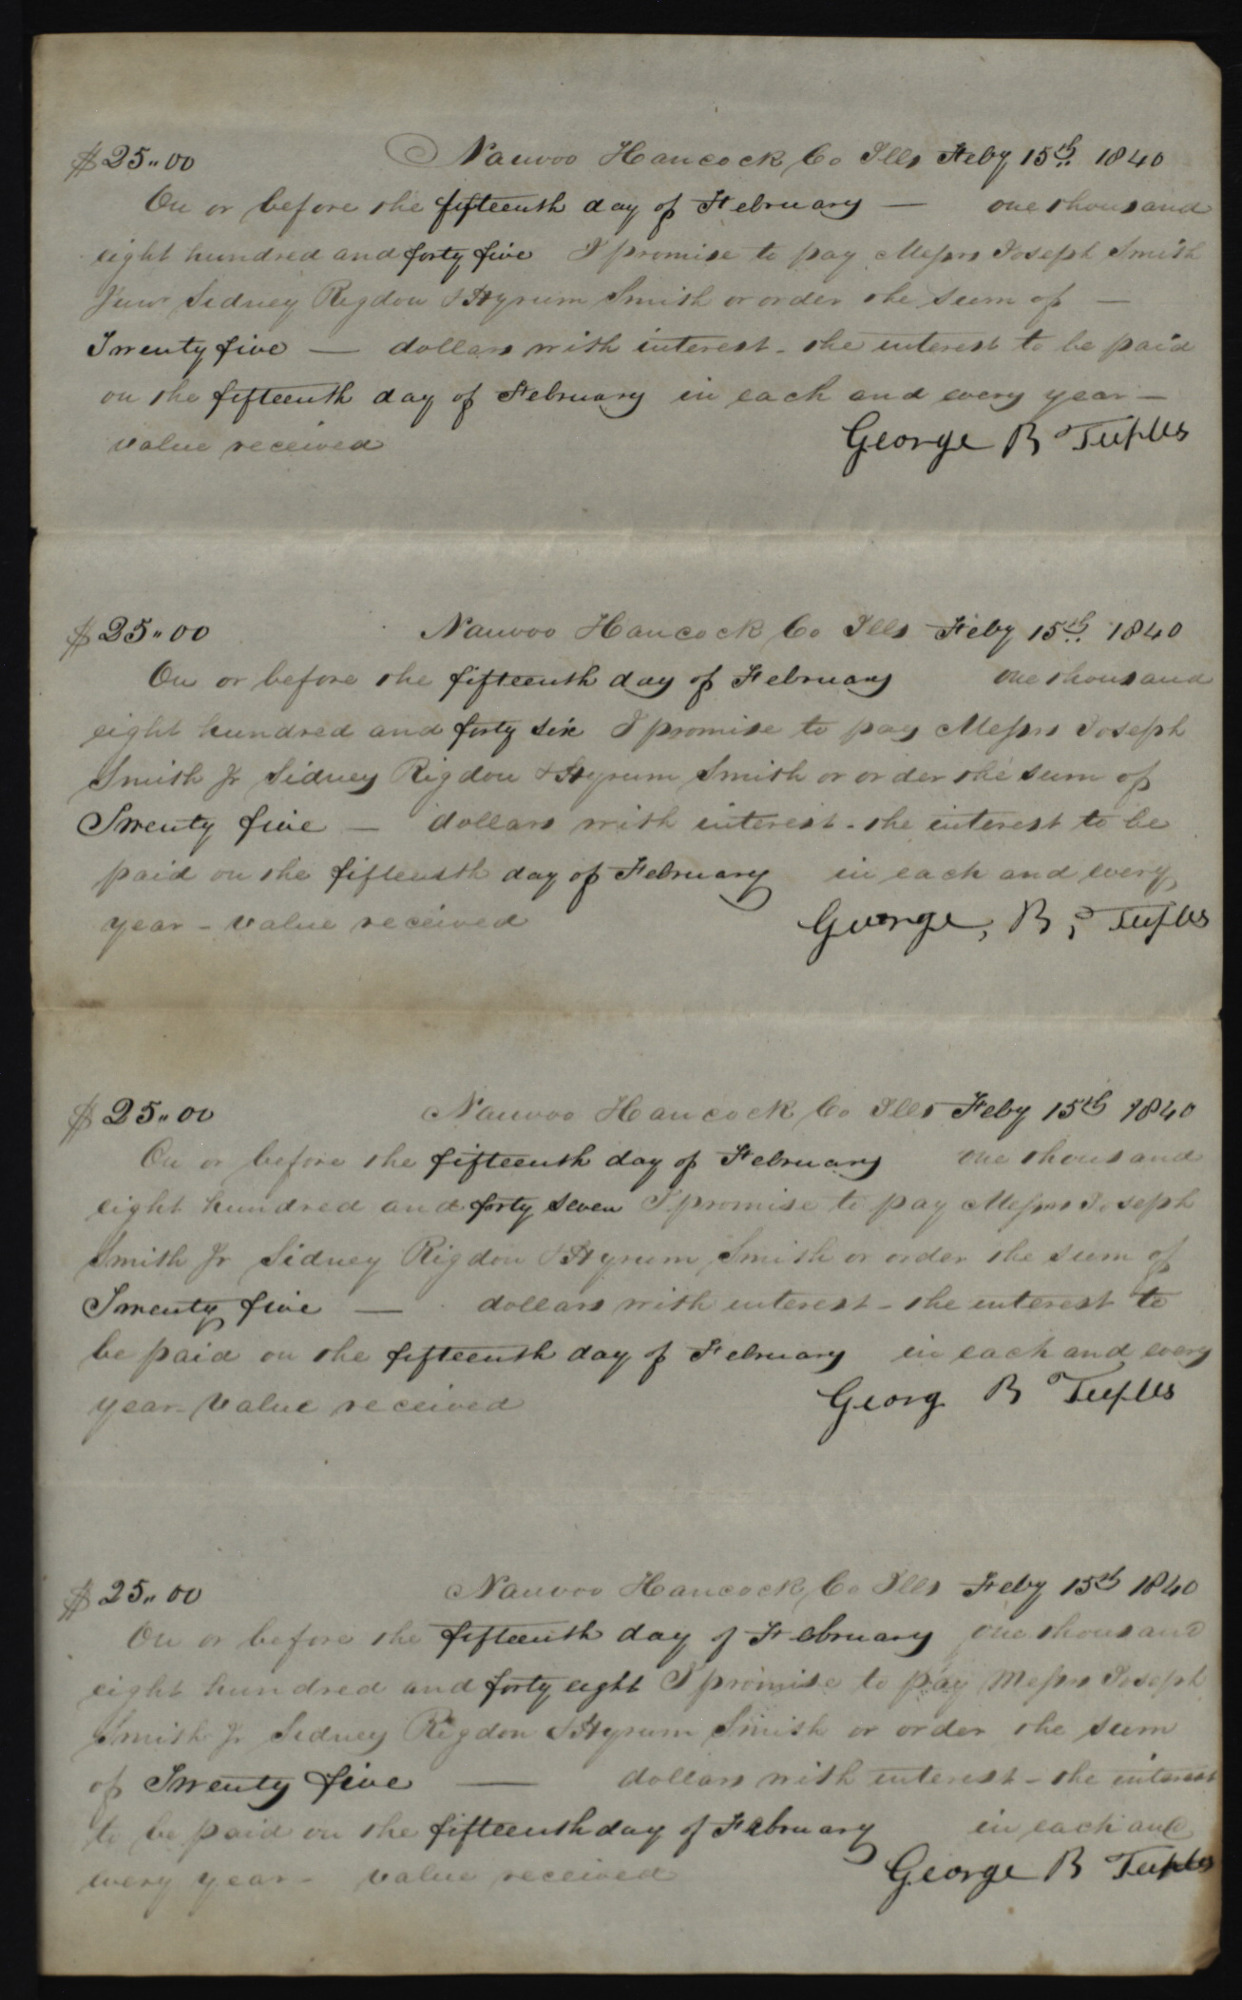 $25〃00 Nauvoo Hancock Co Ills Feby 15th 1840
On or before the fifteenth day of February — one thousand
eight hundred and forty five I promise to pay Messrs Joseph Smith
Junr Sidney Rigdon & Hyrum Smith or order the sum of —
Twenty five — dollars with interest - the interest to be paid
on the fifteenth day of February in each and every year —
value received George B Tuples
$25〃00 Nauvoo Hancock Co Ills Feby 15th 1840
On or before the fifteenth day of February one thousand
eight hundred and forty six I promise to pay Messrs Joseph
Smith Jr Sidney Rigdon & Hyrum Smith or order the sum of
Twenty five — dollars with interest - the interest to be
paid on the fifteenth day of February in each and every
year - value received George, B, Tuples
$25〃00 Nauvoo Hancock Co Ills Feby 15th 1840
On or before the fifteenth day of February one thousand
eight hundred and forty seven I promise to pay Messrs Joseph
Smith Jr Sidney Rigdon & Hyrum Smith or order the sum of
Twenty five — dollars with interest - the interest to
be paid on the fifteenth day of February in each and every
year - value received Georg B Tuples
$25〃00 Nauvoo Hancock Co Ills Feby 15th 1840
On or before the fifteenth day of February one thousand
eight hundred and forty eight I promise to pay Messrs Joseph
Smith Jr Sidney Rigdon & Hyrum Smith or order the sum
of Twenty five — dollars with interest - the interest
to be paid on the fifteenth day of February in each and
every year - value received George B Tuples